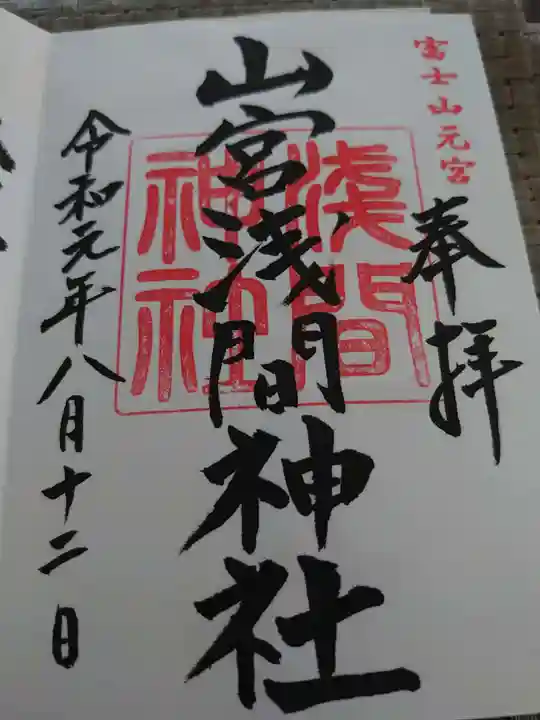 富士山元宮
奉拝
山宮浅間神社
淺間
神社
令和元年八月十二日